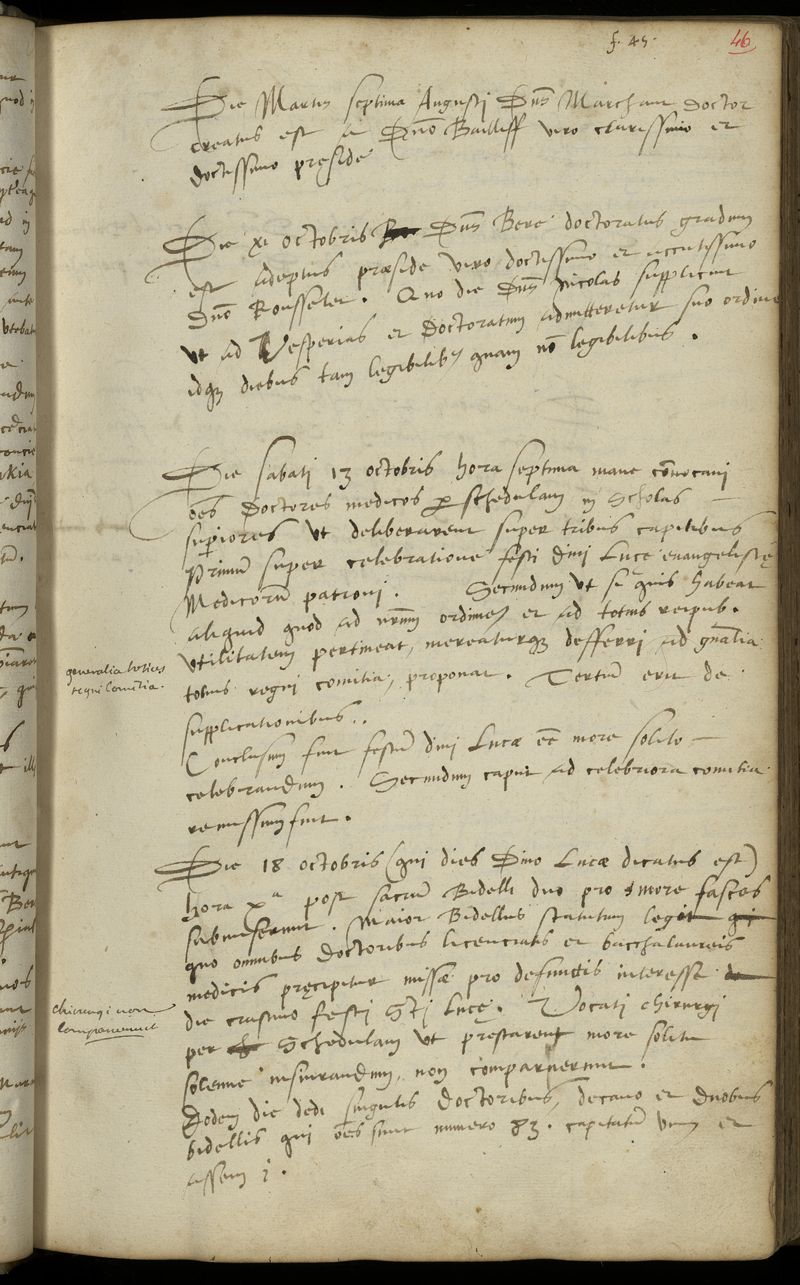 f. 45.
46
Die Martis septima Augusti Dns Marchant doctor
creatus est a Dno Bailliff viro clarissimo et
doctissimo preside
Die xi octobris Dns Bere doctoratus gradum
est adeptus præside viro doctissimo et
Dno Rousselet. Quo die Dns Nicolas supplicuit
vt ad Vesperias et Doctoratum admitteretur suo ordine
idq diebus tam legibilibus quam nō legibilibus.
Die sabati 13 octobris hora septima mane cōuocaui
oēs Doctores medicos per schedulam in Scholas
superiores vt deliberarent super tribus capitibus
Primum super celebratione festi diui Lucę euangelistę
Medicorū patroni. Secundum vt si quis habeat
aliquid quod ad nrum ordinem et ad totius reipub.
vtilitatem pertineat, mereaturq defferri ad gnalia
totius regni comitia, proponat. Tertiū erit de
supplicationibus.
generalia totius
regni Comitia.
Conclusum fuit festū diui Lucæ eē more solito
celebrandum. Secundum caput ad celebriora comitia
remissum fuit.
Die 18 octobris (qui dies Diuo Lucæ dicatus est)
hora xa post sacrū Bidelli duo pro more fasces
submiserunt. Maior Bidellus statutum legit
quo omnibus doctoribus licenciatis et bacchalaureis
medicis pręcipitur missæ pro defunctis interesse
die crastino festi Sti Lucę. Vocati chirurgi
per Schedulam vt prestarent more solito
solemne iusiurandum, non comparuerunt.
chirurgi non
comparuerunt
Eodem die dedi singulis doctoribus, decano et duobus
bidellis qui oēs sunt numero 83. capitatū vnum et
assem j.